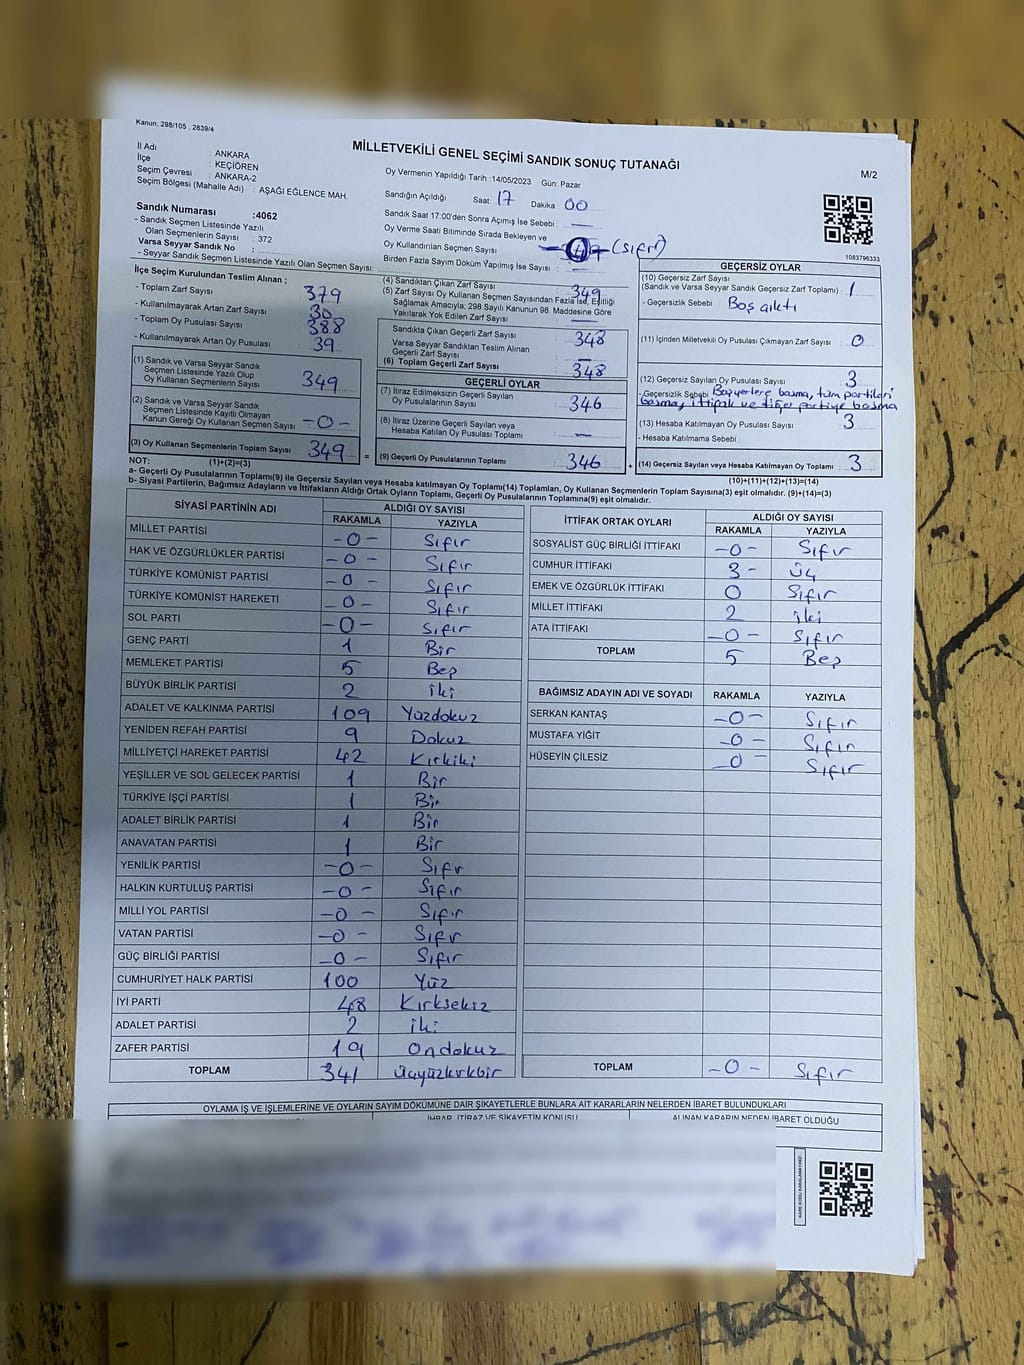 Kanun: 298/105 , 2839/4
MİLLETVEKİLİ GENEL SEÇİMİ SANDIK SONUÇ TUTANAĞI
M/2
İl Adı : ANKARA
İlçe : KEÇİÖREN
Seçim Çevresi : ANKARA-2
Seçim Bölgesi (Mahalle Adı) : AŞAĞI EĞLENCE MAH.
Oy Vermenin Yapıldığı Tarih :14/05/2023 Gün: Pazar
Sandığın Açıldığı Saat: 17 Dakika: 00
Sandık Saat 17:00'den Sonra Açılmış İse Sebebi : —
Oy Verme Saati Bitiminde Sırada Bekleyen ve
Oy Kullandırılan Seçmen Sayısı (sıfır)
Birden Fazla Sayım Döküm Yapılmış İse Sayısı : —
1083796333
Sandık Numarası :4062
- Sandık Seçmen Listesinde Yazılı
Olan Seçmenlerin Sayısı : 372
Varsa Seyyar Sandık No :
- Seyyar Sandık Seçmen Listesinde Yazılı Olan Seçmen Sayısı:
İlçe Seçim Kurulundan Teslim Alınan ;
- Toplam Zarf Sayısı 379
- Kullanılmayarak Artan Zarf Sayısı 30
- Toplam Oy Pusulası Sayısı 388
- Kullanılmayarak Artan Oy Pusulası 39
(1) Sandık ve Varsa Seyyar Sandık
Seçmen Listesinde Yazılı Olup
Oy Kullanan Seçmenlerin Sayısı : 349
(2) Sandık ve Varsa Seyyar Sandık
Seçmen Listesinde Kayıtlı Olmayan
Kanun Gereği Oy Kullanan Seçmen Sayısı : -0-
(3) Oy Kullanan Seçmenlerin Toplam Sayısı : 349
(1)+(2)=(3)
(4) Sandıktan Çıkan Zarf Sayısı : 349
(5) Zarf Sayısı Oy Kullanan Seçmen Sayısından Fazla İse, Eşitliği
Sağlamak Amacıyla; 298 Sayılı Kanunun 98. Maddesine Göre
Yakılarak Yok Edilen Zarf Sayısı : —
Sandıkta Çıkan Geçerli Zarf Sayısı : 348
Varsa Seyyar Sandıktan Teslim Alınan
Geçerli Zarf Sayısı : —
(6) Toplam Geçerli Zarf Sayısı : 348
GEÇERLİ OYLAR
(7) İtiraz Edilmeksizin Geçerli Sayılan
Oy Pusulalarının Sayısı : 346
(8) İtiraz Üzerine Geçerli Sayılan veya
Hesaba Katılan Oy Pusulası Toplamı : —
= (9) Geçerli Oy Pusulalarının Toplamı : 346
GEÇERSİZ OYLAR
(10) Geçersiz Zarf Sayısı
(Sandık ve Varsa Seyyar Sandık Geçersiz Zarf Toplamı) : 1
- Geçersizlik Sebebi : Boş çıktı
(11) İçinden Milletvekili Oy Pusulası Çıkmayan Zarf Sayısı : 0
(12) Geçersiz Sayılan Oy Pusulası Sayısı : 3
- Geçersizlik Sebebi : basma, tüm partileri
basma, ittifak ve diğer partiye basma
(13) Hesaba Katılmayan Oy Pusulası Sayısı : 3
- Hesaba Katılmama Sebebi :
+ (14) Geçersiz Sayılan veya Hesaba Katılmayan Oy Toplamı : 3
(10)+(11)+(12)+(13)=(14)
NOT:
a- Geçerli Oy Pusulalarının Toplamı(9) ile Geçersiz Sayılan veya Hesaba Katılmayan Oy Toplamı(14) Toplamları, Oy Kullanan Seçmenlerin Toplam Sayısına(3) eşit olmalıdır. (9)+(14)=(3)
b- Siyasi Partilerin, Bağımsız Adayların ve İttifakların Aldığı Ortak Oyların Toplamı, Geçerli Oy Pusulalarının Toplamına(9) eşit olmalıdır.
SİYASİ PARTİNİN ADI ALDIĞI OY SAYISI
RAKAMLA YAZIYLA
MİLLET PARTİSİ -0- Sıfır
HAK VE ÖZGÜRLÜKLER PARTİSİ -0- Sıfır
TÜRKİYE KOMÜNİST PARTİSİ -0- Sıfır
TÜRKİYE KOMÜNİST HAREKETİ -0- Sıfır
SOL PARTİ -0- Sıfır
GENÇ PARTİ 1 Bir
MEMLEKET PARTİSİ 5 Beş
BÜYÜK BİRLİK PARTİSİ 2 iki
ADALET VE KALKINMA PARTİSİ 109 Yüzdokuz
YENİDEN REFAH PARTİSİ 9 Dokuz
MİLLİYETÇİ HAREKET PARTİSİ 42 Kırkiki
YEŞİLLER VE SOL GELECEK PARTİSİ 1 Bir
TÜRKİYE İŞÇİ PARTİSİ 1 Bir
ADALET BİRLİK PARTİSİ 1 Bir
ANAVATAN PARTİSİ 1 Bir
YENİLİK PARTİSİ -0- Sıfır
HALKIN KURTULUŞ PARTİSİ -0- Sıfır
MİLLİ YOL PARTİSİ -0- Sıfır
VATAN PARTİSİ -0- Sıfır
GÜÇ BİRLİĞİ PARTİSİ -0- Sıfır
CUMHURİYET HALK PARTİSİ 100 Yüz
İYİ PARTİ 48 Kırksekiz
ADALET PARTİSİ 2 iki
ZAFER PARTİSİ 19 Ondokuz
TOPLAM 341 üçyüzkırkbir
İTTİFAK ORTAK OYLARI ALDIĞI OY SAYISI
RAKAMLA YAZIYLA
SOSYALİST GÜÇ BİRLİĞİ İTTİFAKI -0- Sıfır
CUMHUR İTTİFAKI 3- üç
EMEK VE ÖZGÜRLÜK İTTİFAKI 0 Sıfır
MİLLET İTTİFAKI 2 iki
ATA İTTİFAKI -0- Sıfır
TOPLAM 5 Beş
BAĞIMSIZ ADAYIN ADI VE SOYADI RAKAMLA YAZIYLA
SERKAN KANTAŞ -0- Sıfır
MUSTAFA YİĞİT -0- Sıfır
HÜSEYİN ÇİLESİZ -0- Sıfır
TOPLAM -0- Sıfır
OYLAMA İŞ VE İŞLEMLERİNE VE OYLARIN SAYIM DÖKÜMÜNE DAİR ŞİKAYETLERLE BUNLARA AİT KARARLARIN NELERDEN İBARET BULUNDUKLARI
İHBAR, İTİRAZ VE ŞİKAYETİN KONUSU ALINAN KARARIN NEDEN İBARET OLDUĞU
KARE KODU KARALAMAYINIZ!